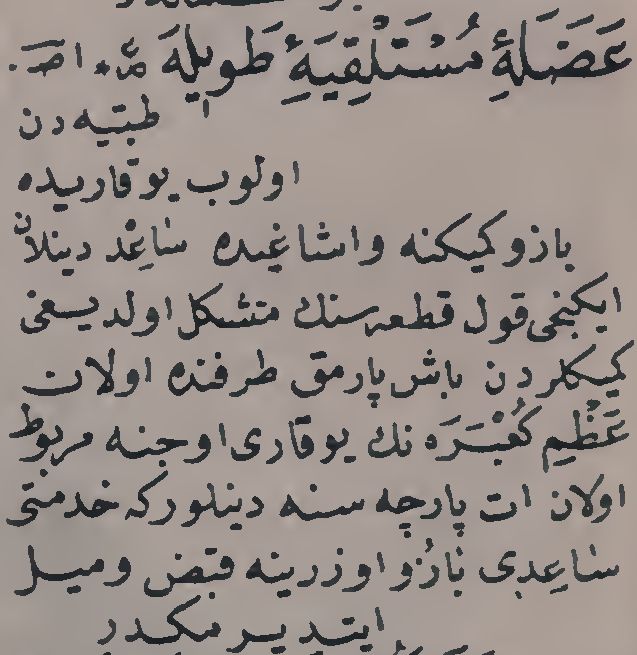 عَضَلَۀِ مُسْتَلْقِيَۀِ طَوِيلَهَ مّر٠ اصـ.
طبّيه دن
اولوب يوقاريده
بازو كيكنه واشاغيده سَاعِدْ دينلان
ايكنجى قول قطعه سنك متشكل اولديغى
كميكلردن باش پارمق طرفنده اولان
عَظْمِ كُعْبُرَه نك يوقارى اوجنه مربوط
اولان ات پارچه سنه دينلوركه خدمتى
سَاعِدِى بَازُو اوزرينه قبض وميل
ايتديرمكدر